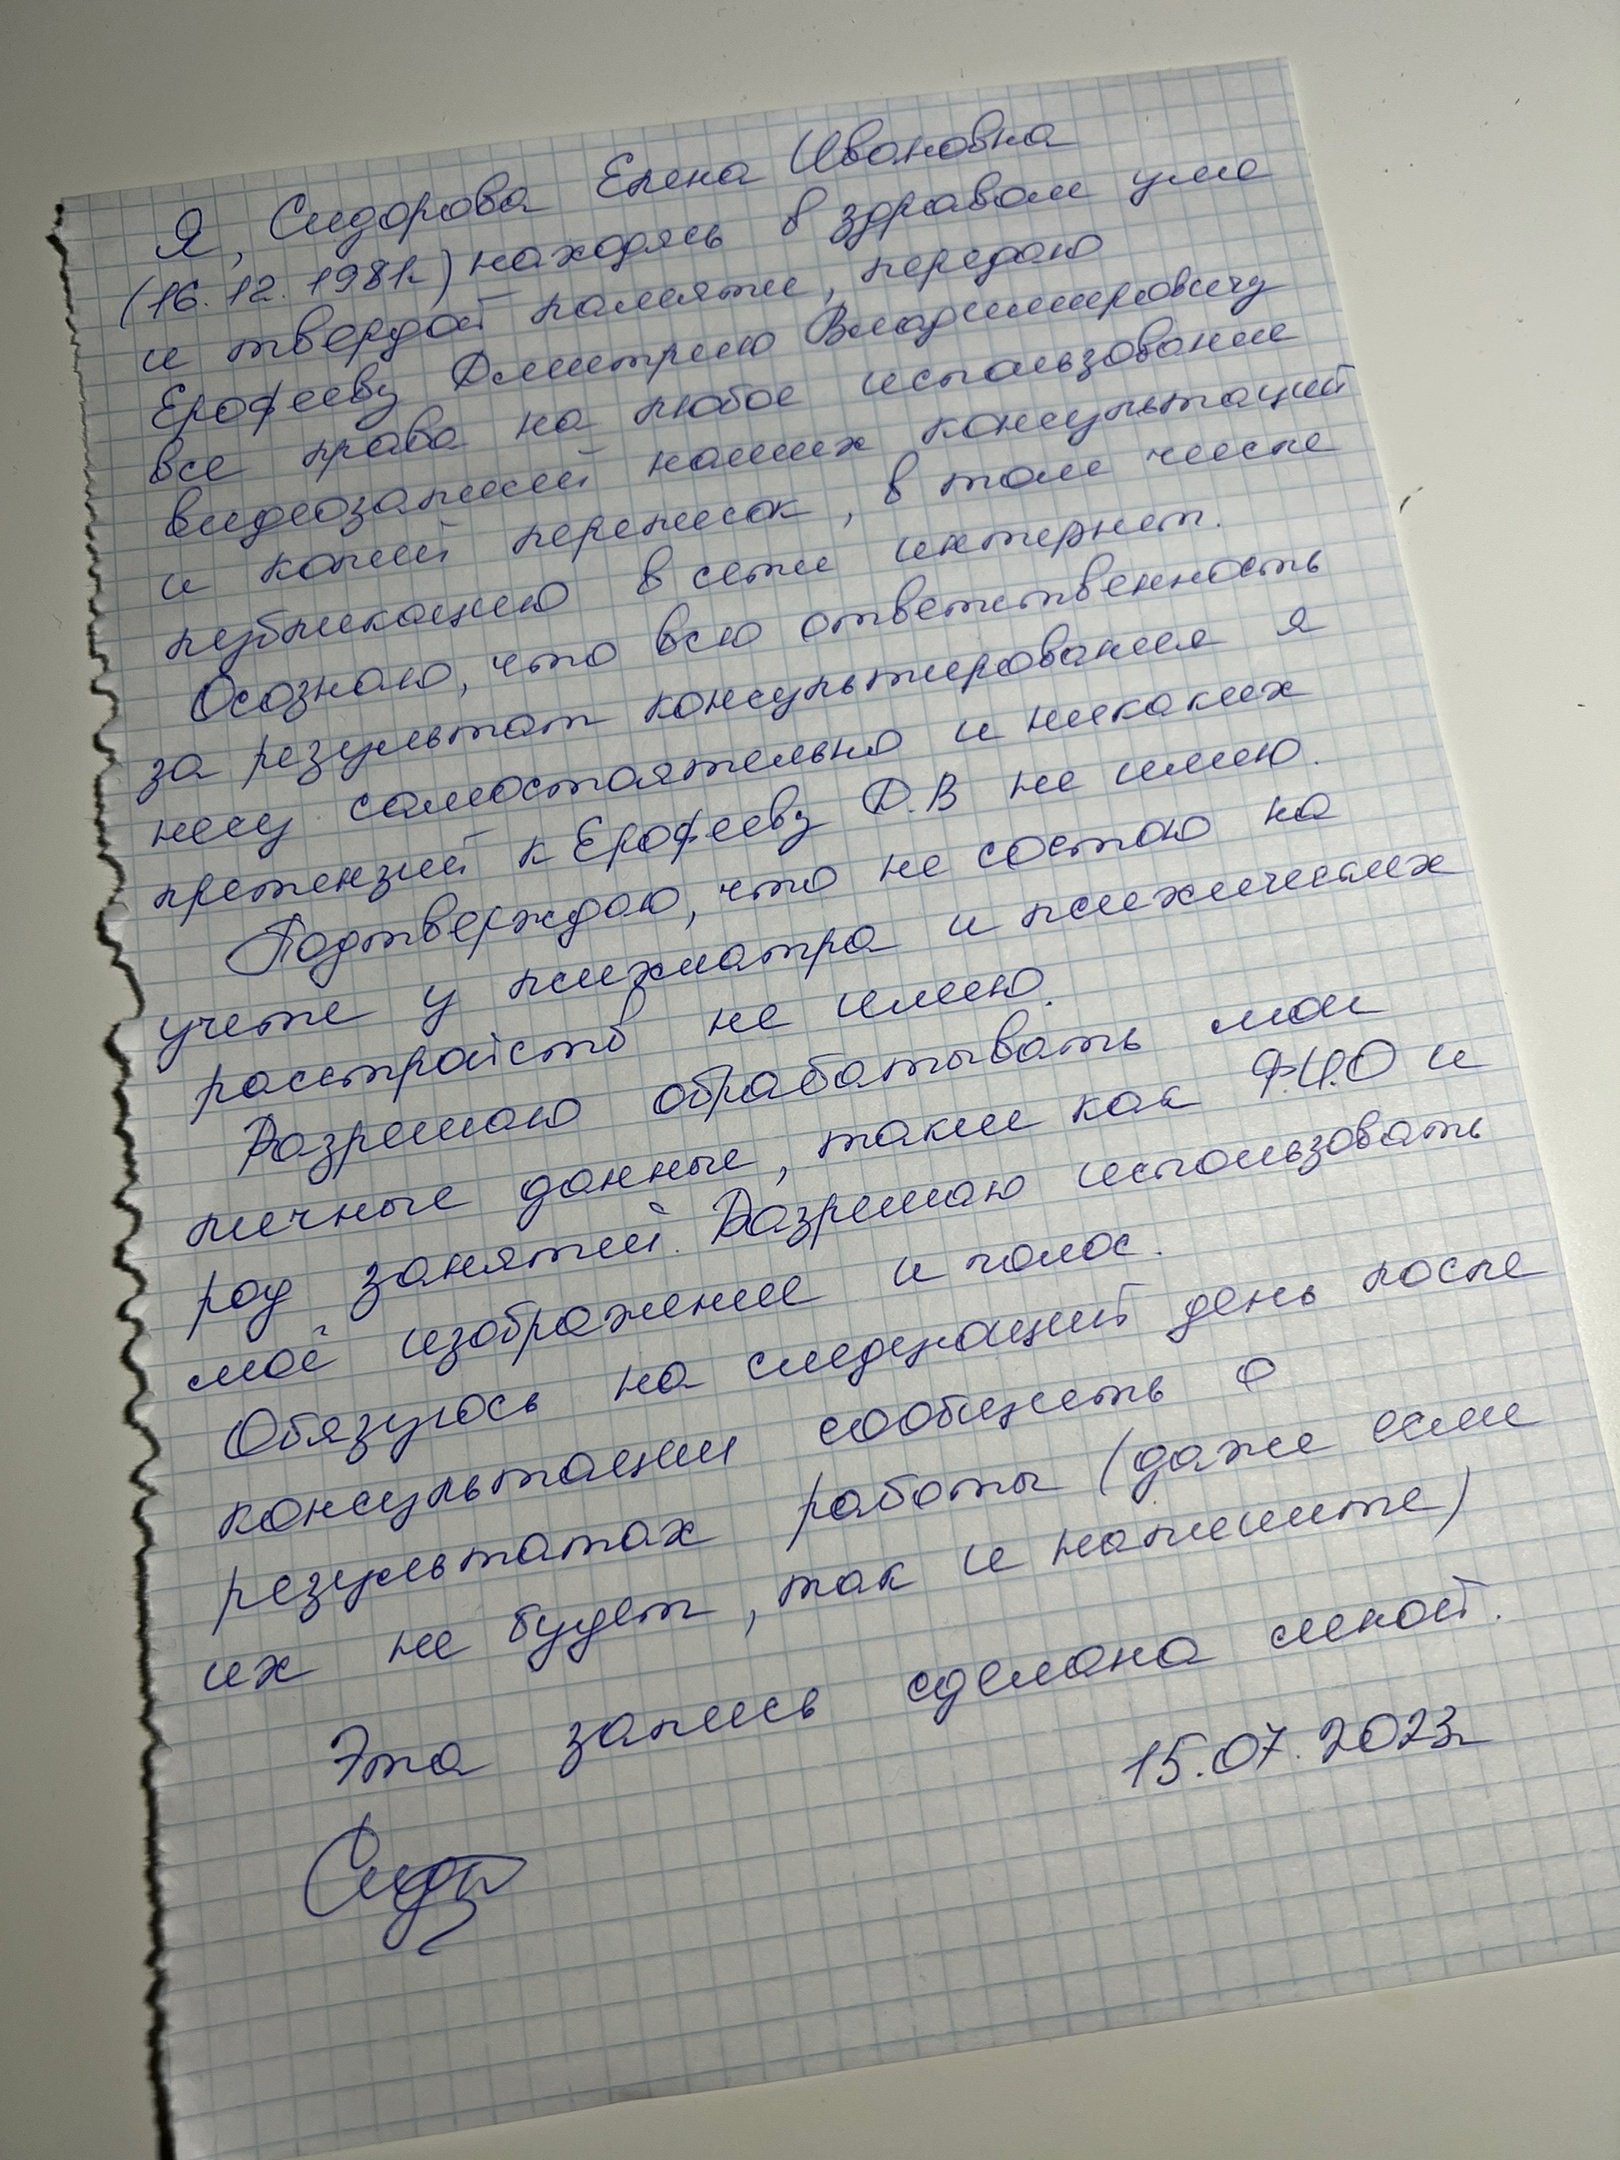 Я, Сидорова Елена Ивановна
(16.12.1981г) находясь в здравом уме
и твердой памяти, передаю
Ерофееву Дмитрию Владимировичу
все права на любое использование
видеозаписей наших консультаций
и копий переписок, в том числе
публикацию в сети интернет.
Осознаю, что всю ответственность
за результат консультирования я
несу самостоятельно и никаких
претензий к Ерофееву Д.В не имею.
Подтверждаю, что не состою на
учете у психиатра и психических
расстройств не имею.
Разрешаю обрабатывать мои
личные данные, такие как Ф.И.О и
род занятий. Разрешаю использовать
моё изображение и голос.
Обязуюсь на следующий день после
консультации сообщить о
результатах работы (даже если
их не будет, так и напишите)
Эта запись сделана мной.
15.07.2023г
Сидр